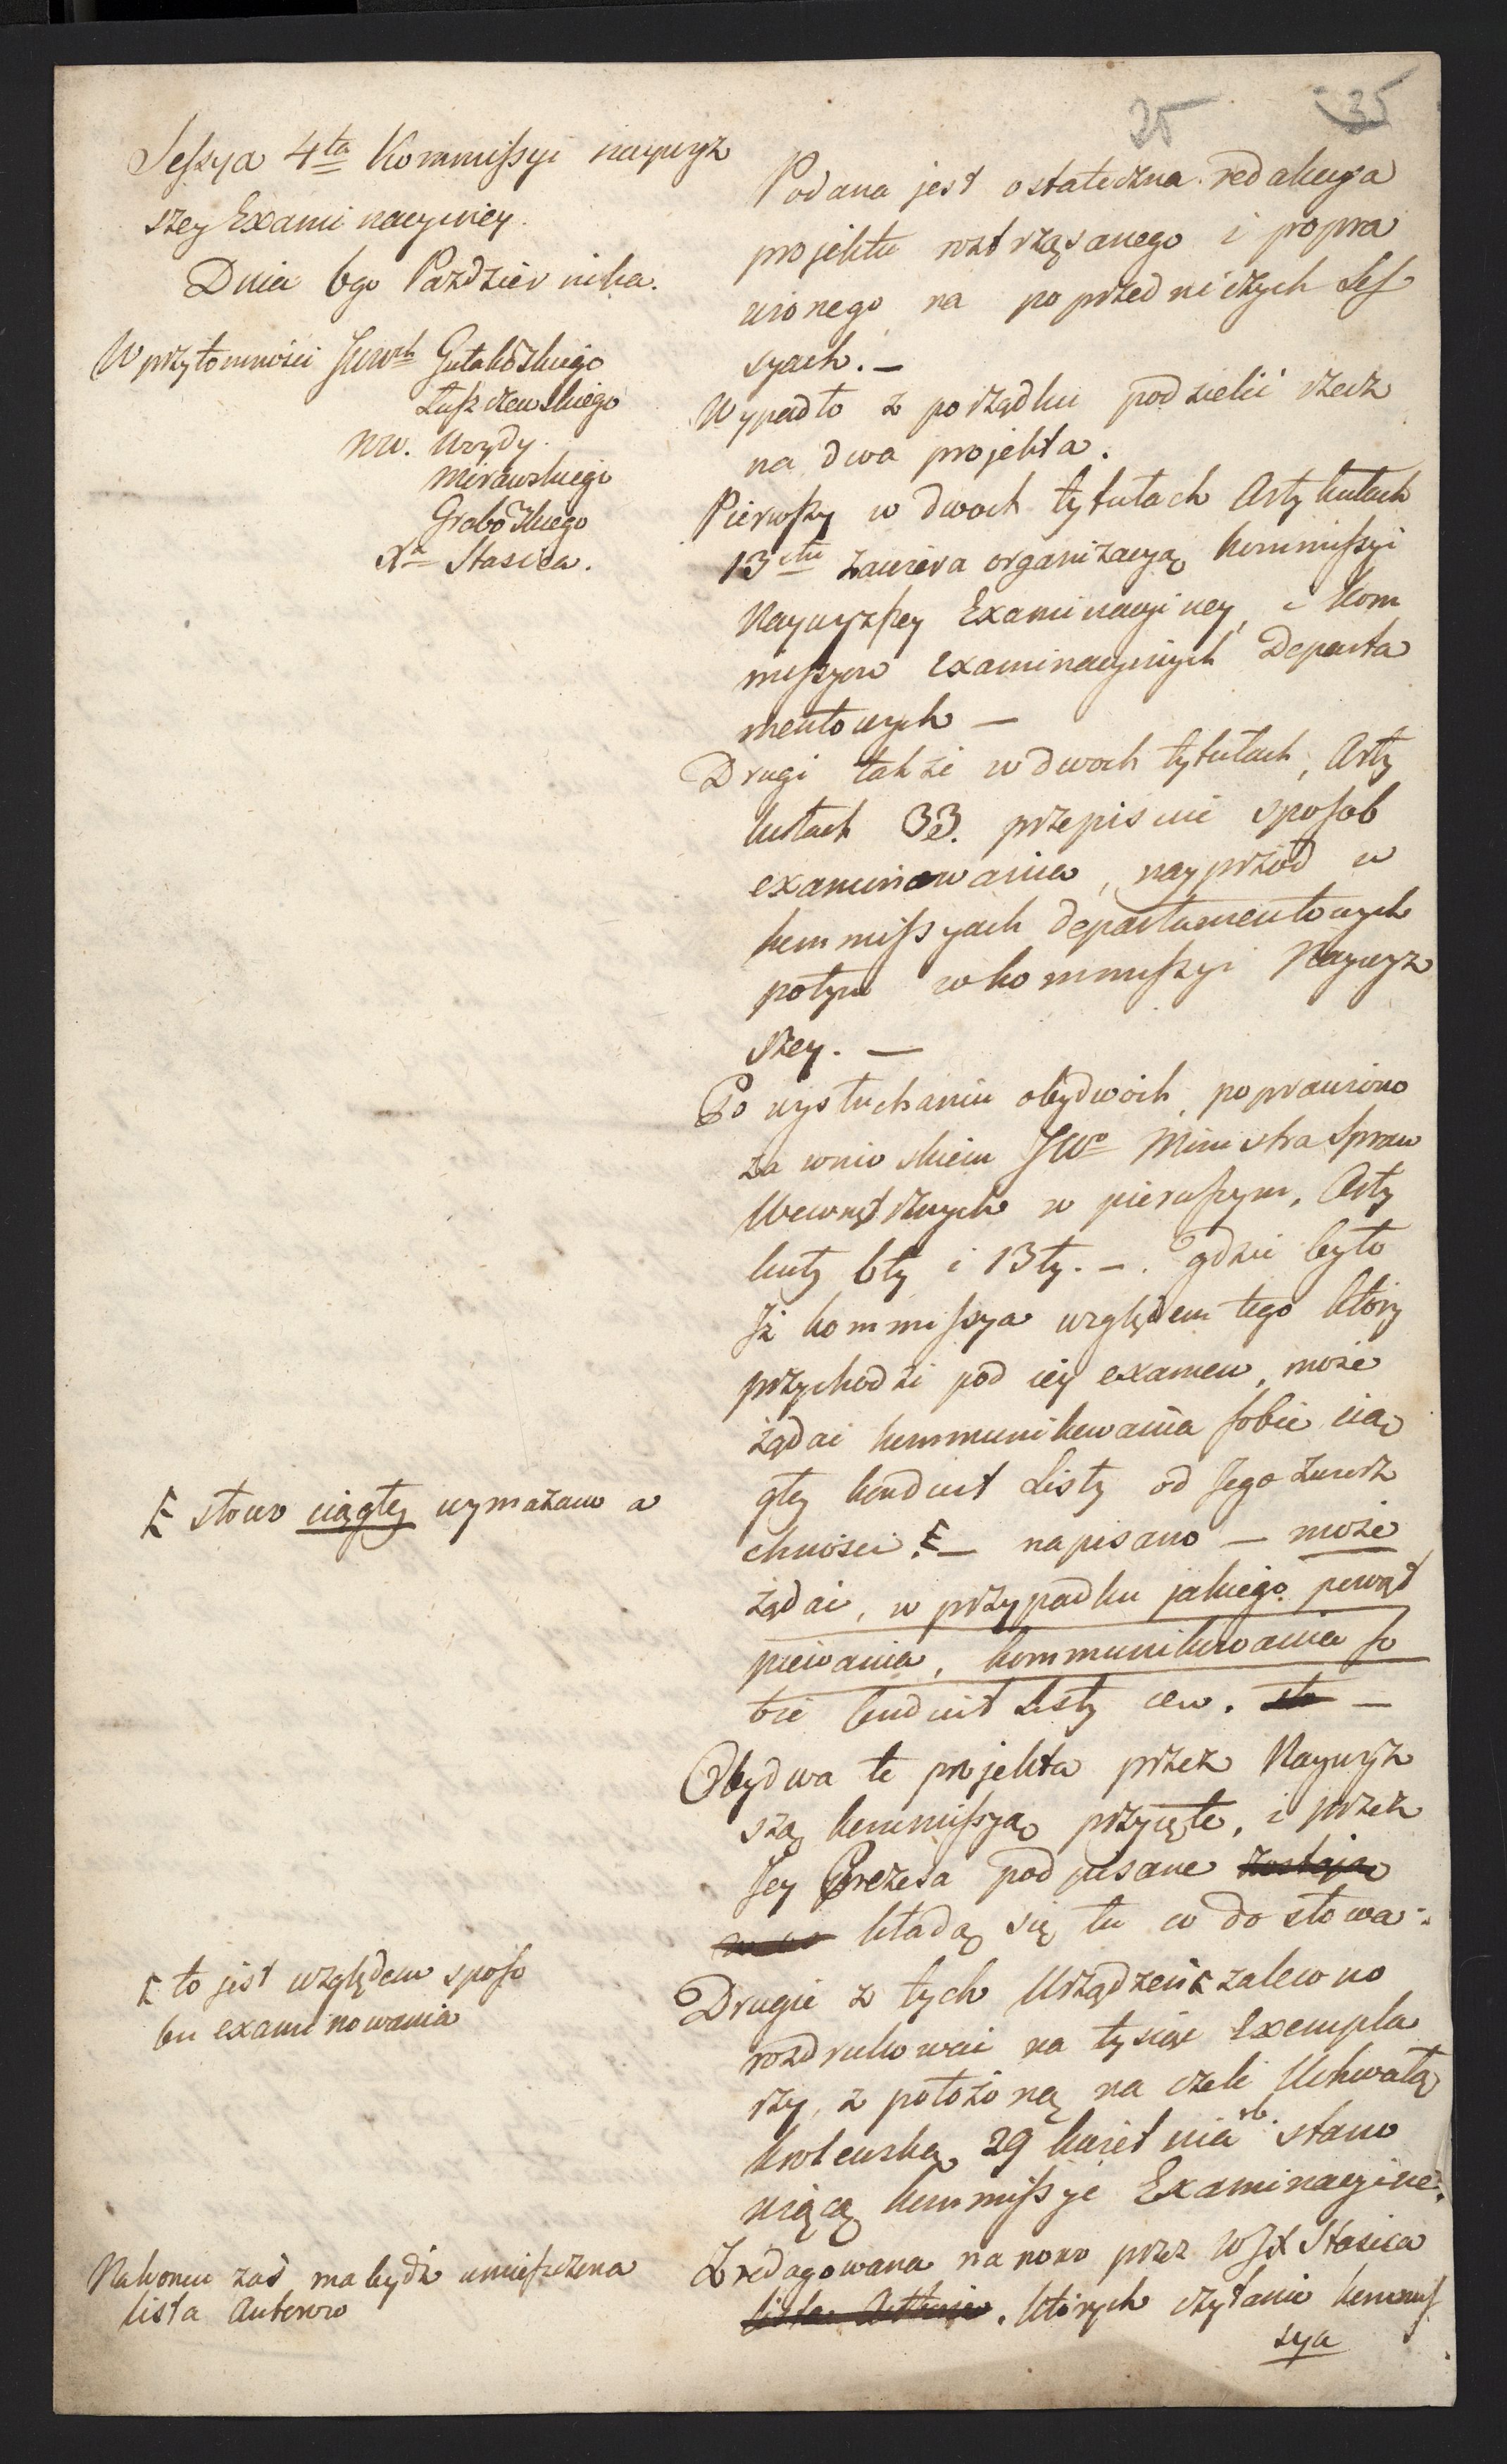 25 35
Sessya 4ta Kommissyi naywyz
szey Examinacyiney.
Dnia 6go Pazdziernika.
W przytomności JWWch Gutakowskiego
Łuszczewskiego
WW. Woydy.
Mirawskiego
Grabowskiego
Xa Stasica.
Podana jest ostateczna redakcya
projektu roztrząsanego i popra
wionego na poprzedniczych Ses
syach. —
Wypadło z porządku podzielić rzecz
na dwa projekta.
Pierwszy w dwoch tytułach Artykułach
13stu zawiera organizacyą kommissyi
Naywyzszey Examinacyiney, i Kom
missyow examinacyinych Departa
mentowych —
Drugi także w dwoch tytułach, Arty
kułach 33. przepisuie sposob
examinowania, nayprzód w
kommissyach departamentowych
potym w kommissyi Naywyz
szey. —
Po wysłuchaniu obydwóch, poprawiono
za wnioskiem JWo Ministra Spraw
Wewnętrznych w pierwszym, Arty
kuły 6ty i 13ty. —. gdzie było
Iż kommissya względem tego który
przychodzi pod iey examen, może
żądać kommunikowania sobie cią
głey konduit Listy od Jego zwierz
chności. — napisano — może
żądać, w przypadku jakiego powąt
piewania, kommunikowania so
bie konduit Listy cew. sto —
słowo ciągłey wymazano a
Obydwa te projekta przez Naywyz
szą kommissyą przyięte, i przez
Jey Prezesa podpisane zostają
kładą się tu co do słowa.
Drugie z tych Urządzeń zalecono
rozdrukować na tysiąc Exempla
rzy, z położoną na czele Uchwałą
krolewską 29 kwietnia rb. stano
wiącą kommissye Examinacyine.
to jest względem sposo
bu examinowania
Zredagowana nanowo przez WJX Stasica
lista Autorow. których czytanie kommis
sya
Nakoncu zaś ma bydz umieszczona
lista Autorow